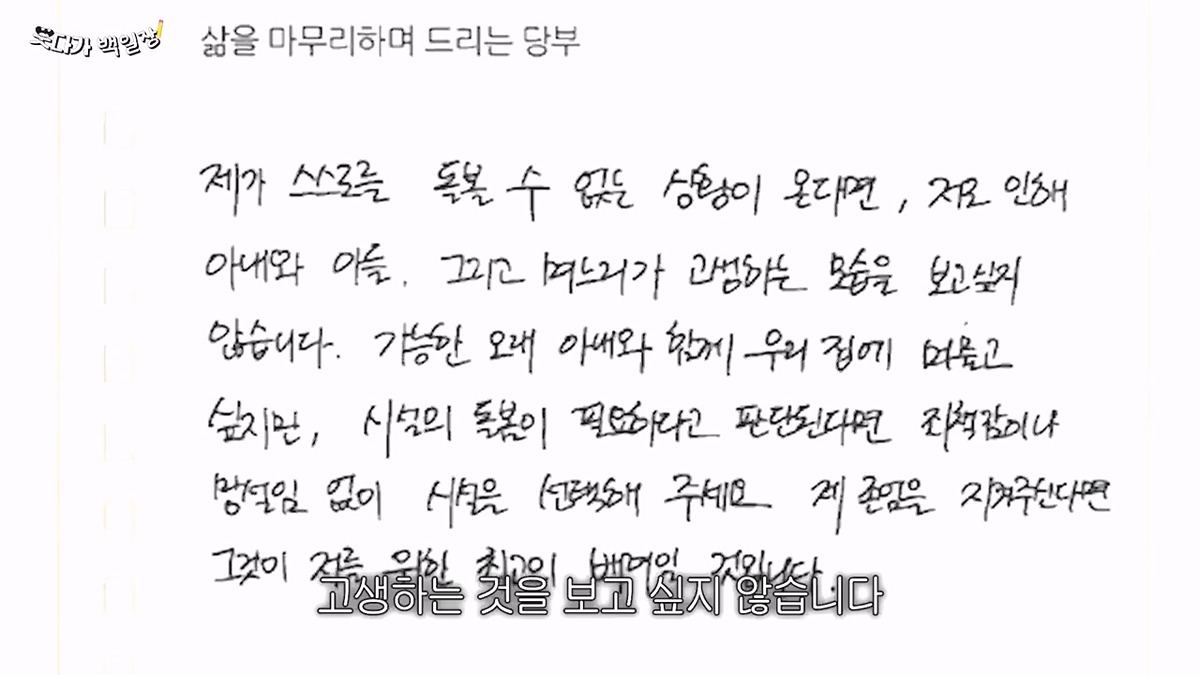 웃다가 백일장
삶을 마무리하며 드리는 당부
제가 스스로를 돌볼 수 없는 상황이 온다면, 저로 인해
아내와 아들. 그리고 며느리가 고생하는 모습을 보고싶지
않습니다. 가능한 오래 아내와 함께 우리 집에 머물고
싶지만, 시설의 돌봄이 필요하다고 판단된다면 죄책감이나
망설임 없이 시설을 선택해 주세요. 제 존엄을 지켜주신다면
그것이 저를 위한 최고의 배려일 것입니다.
고생하는 것을 보고 싶지 않습니다